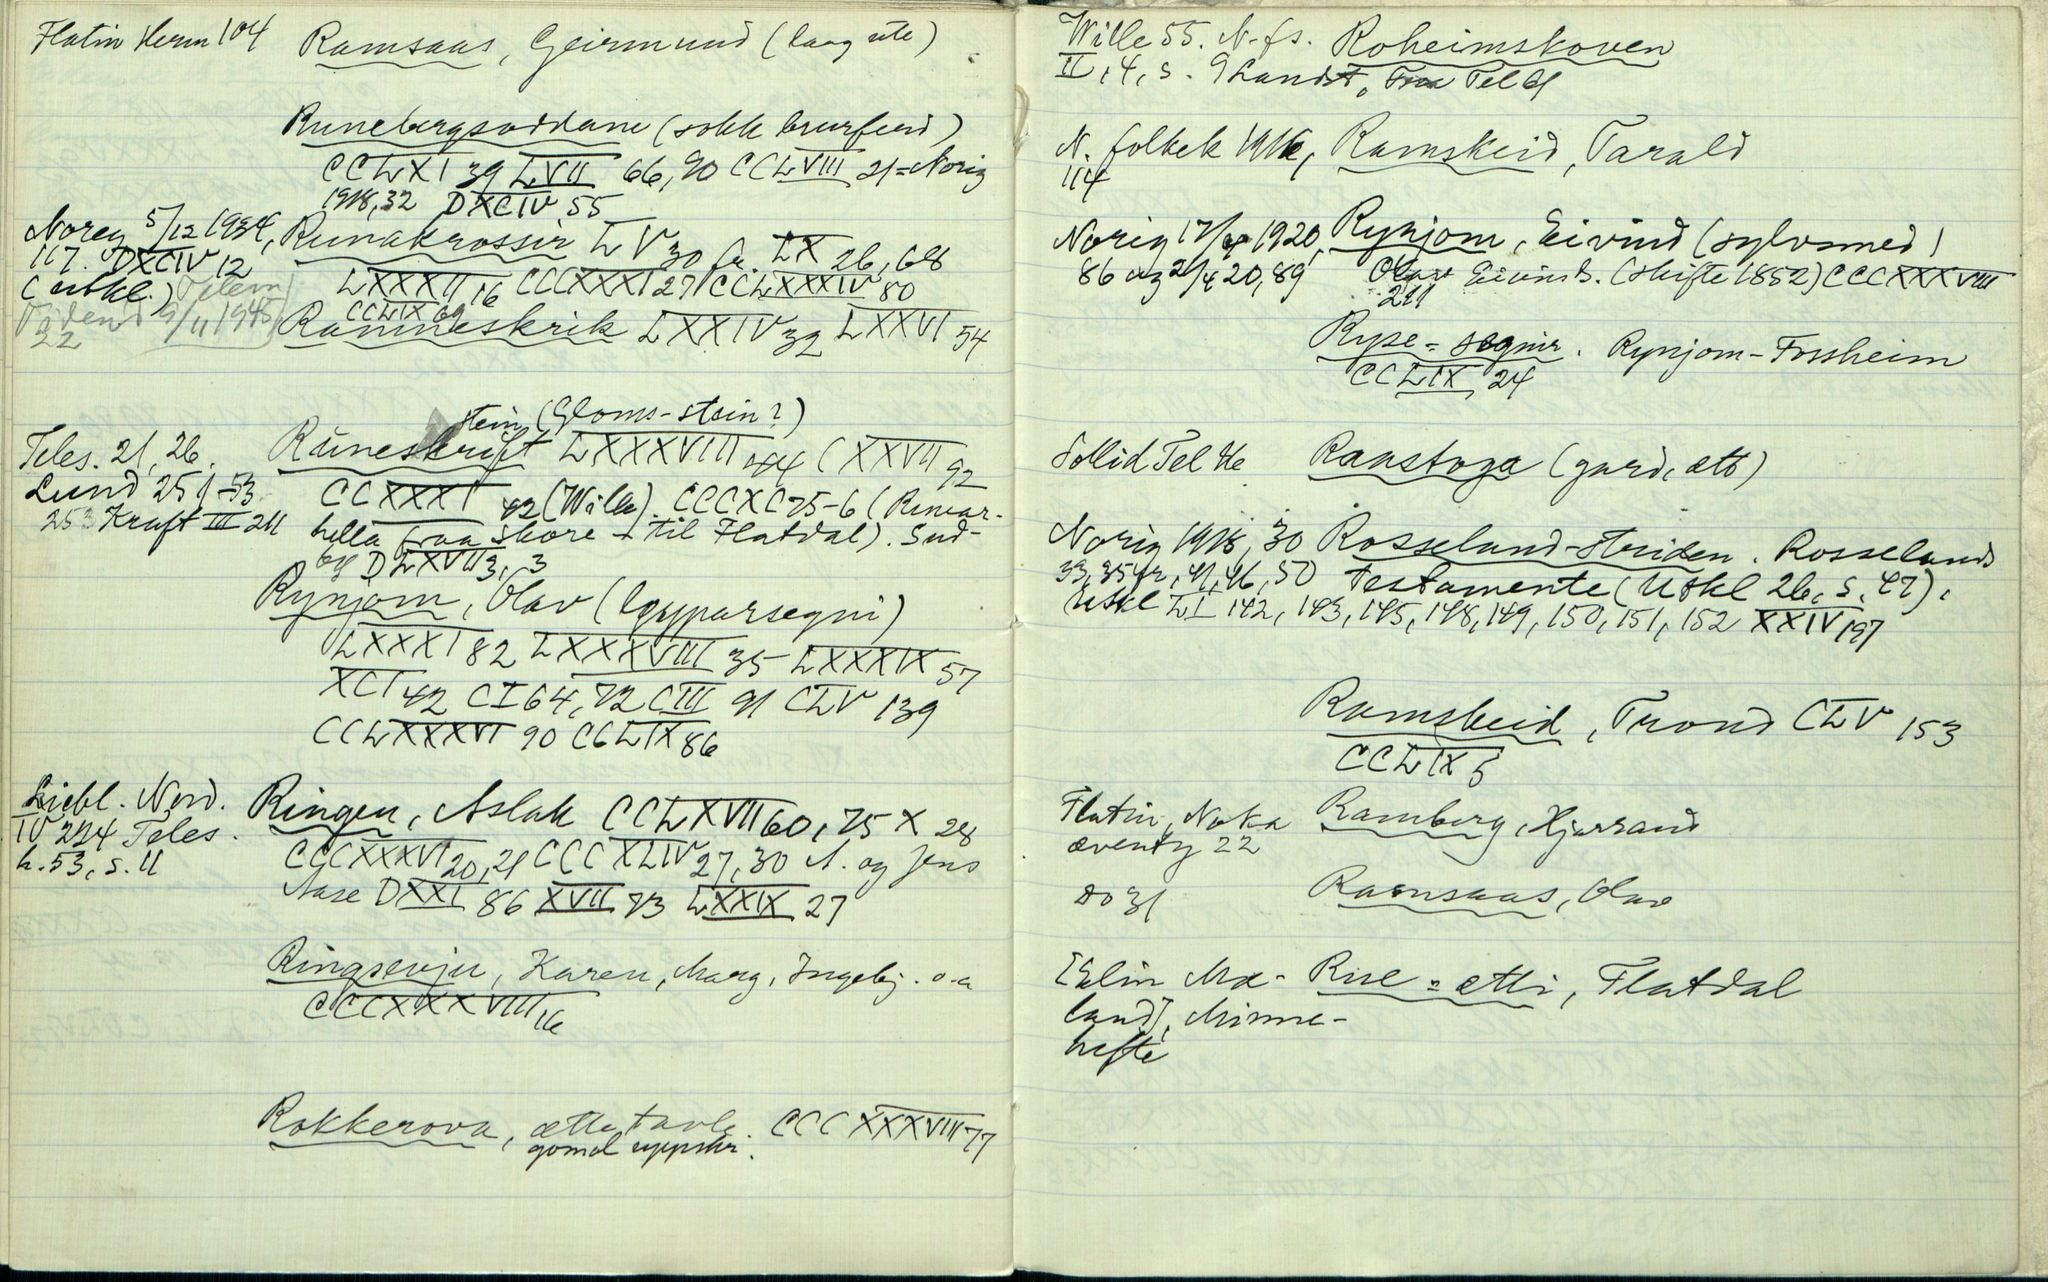 Flatin Herm 104 Ramsaas, Geirmund (laag ute)
Runebergsoddane (sokk brurferd)
CCLXI 39 LVII 66, 90 CCLVIII 21 = Norig
1918, 32 DXCIV 55
Noreg 5/12 1934, Runakrossir LV 30 fr. LX 26, 68
117. DXCIV 12 LXXXII 16 CCCXXXI 27 CCLXXXIV 80
(utkl.) Telem CCLIX 69
Tidend 9/11 1945 Ramneskrik LXXIV 32 LXXVI 54
22
stein (Gloms-stein?)
Teles. 21, 26. Runeskrift LXXXVIII 44 CXXVII 92
Lund 251-53 CCXXXI 42 (Wille). CCCXC 75-6 (Runar-
253 Kraft III 211 hella fraa Skore - til Flatdal). Sud-
bg DLXVII 3, 3
Rynjom, Olav (loypparsegni)
LXXXI 82 LXXXVIII 35 LXXXIX 57
XCI 42 CI 64, 72 CIII 91 CLV 139
CCLXXXVI 90 CCLIX 86
Liebl. Nord. Ringen, Aslak CCLXVII 60, 75 X 28
IV 224 Teles. CCCXXXVI 20, 21 CCCXLIV 27, 30 A. og Jens
h. 53, s. 11 Aase DXXI 86 XVII 73 LXXIX 27
Ringsevju, Karen, Marg, Ingebj. o-a
CCCXXXVIII 16
Rokkerova, ættetavle. CCCXXXVIII 77
gomol uppskr.
Wille 55. N-fs. Roheimskoven
II, 4, s. 9 Landst, Fraa Tel 61
N. folkek 1916, Ramskeid, Tarald
114
Norig 17/4 1920, Rynjom, Eivind (sylvsmed)
86 og 21/4 20, 89 Olav Eivinds. (skifte 1852) CCCXXXVIII
211
Ryse-segnir. Rynjom-Fossheim
CCLIX 24
Sollid Tel He Raastoga (gard, ætt)
Norig 1918, 30 Rosseland-striden. Rosselands
33, 35 fr, 41, 46, 50 testamente (Utkl 26, s. 47).
Utkl LI 142, 143, 145, 148, 149, 150, 151, 152 XXIV 197
Ramskeid, Trond CLV 153
CCLIX 5
Flatin, Noka Ramberg, Hjarrand
æventy 22
Do 31 Ramsaas, Olav
[Elin Mæ- Rue-ætti, Flatdal
land], Minne-
hefte